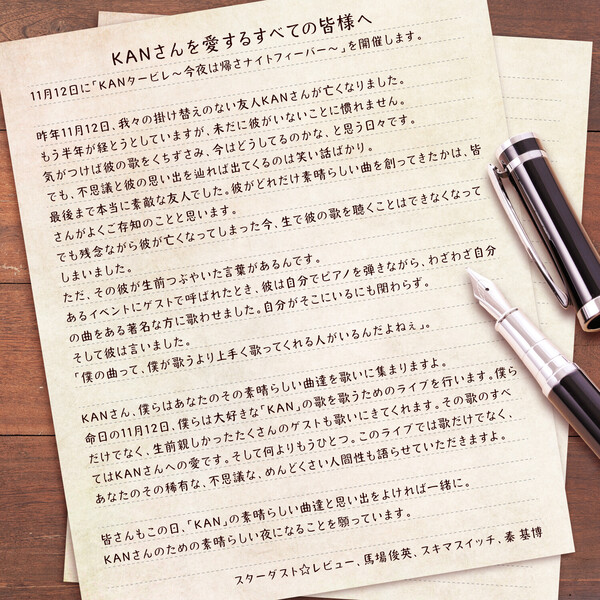 KANさんを愛するすべての皆様へ
11月12日に「KANタービレ～今夜は帰さナイトフィーバー～」を開催します。
昨年11月12日、我々の掛け替えのない友人KANさんが亡くなりました。
もう半年が経とうとしていますが、未だに彼がいないことに慣れません。
気がつけば彼の歌をくちずさみ、今はどうしてるのかな、と思う日々です。
でも、不思議と彼の思い出を辿れば出てくるのは笑い話ばかり。
最後まで本当に素敵な友人でした。彼がどれだけ素晴らしい曲を創ってきたかは、皆
さんがよくご存知のことと思います。
でも残念ながら彼が亡くなってしまった今、生で彼の歌を聴くことはできなくなって
しまいました。
ただ、その彼が生前つぶやいた言葉があるんです。
あるイベントにゲストで呼ばれたとき、彼は自分でピアノを弾きながら、わざわざ自分
の曲をある著名な方に歌わせました。自分がそこにいるにも関わらず。
そして彼は言いました。
「僕の曲って、僕が歌うより上手く歌ってくれる人がいるんだよねぇ」。
KANさん、僕らはあなたのその素晴らしい曲達を歌いに集まりますよ。
命日の11月12日、僕らは大好きな「KAN」の歌を歌うためのライブを行います。僕ら
だけでなく、生前親しかったたくさんのゲストも歌いにきてくれます。その歌のすべ
てはKANさんへの愛です。そして何よりもうひとつ。このライブでは歌だけでなく、
あなたのその稀有な、不思議な、めんどくさい人間性も語らせていただきますよ。
皆さんもこの日、「KAN」の素晴らしい曲達と思い出をよければ一緒に。
KANさんのための素晴らしい夜になることを願っています。
スターダスト☆レビュー、馬場俊英、スキマスイッチ、秦 基博